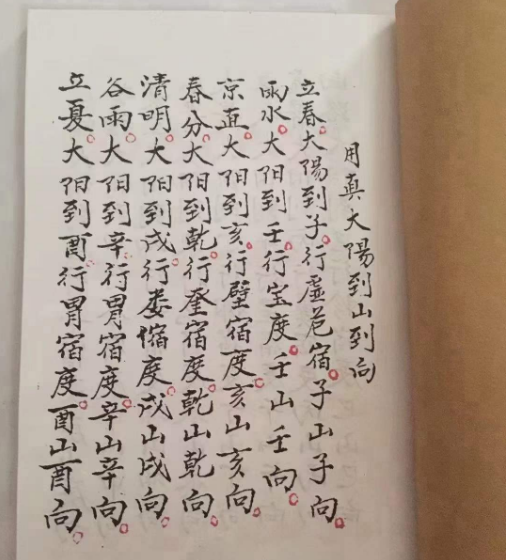 用真大陽到山到向
立春大陽到子行虛危宿子山子向
雨水大阳到壬行宝度壬山壬向
京直大阳到亥行壁宿度亥山亥向
春分大阳到乾行奎宿度乾山乾向
清明大阳到戌行娄宿度戌山戌向
谷雨大阳到辛行胃宿度辛山辛向
立夏大阳到酉行胃宿度酉山酉向